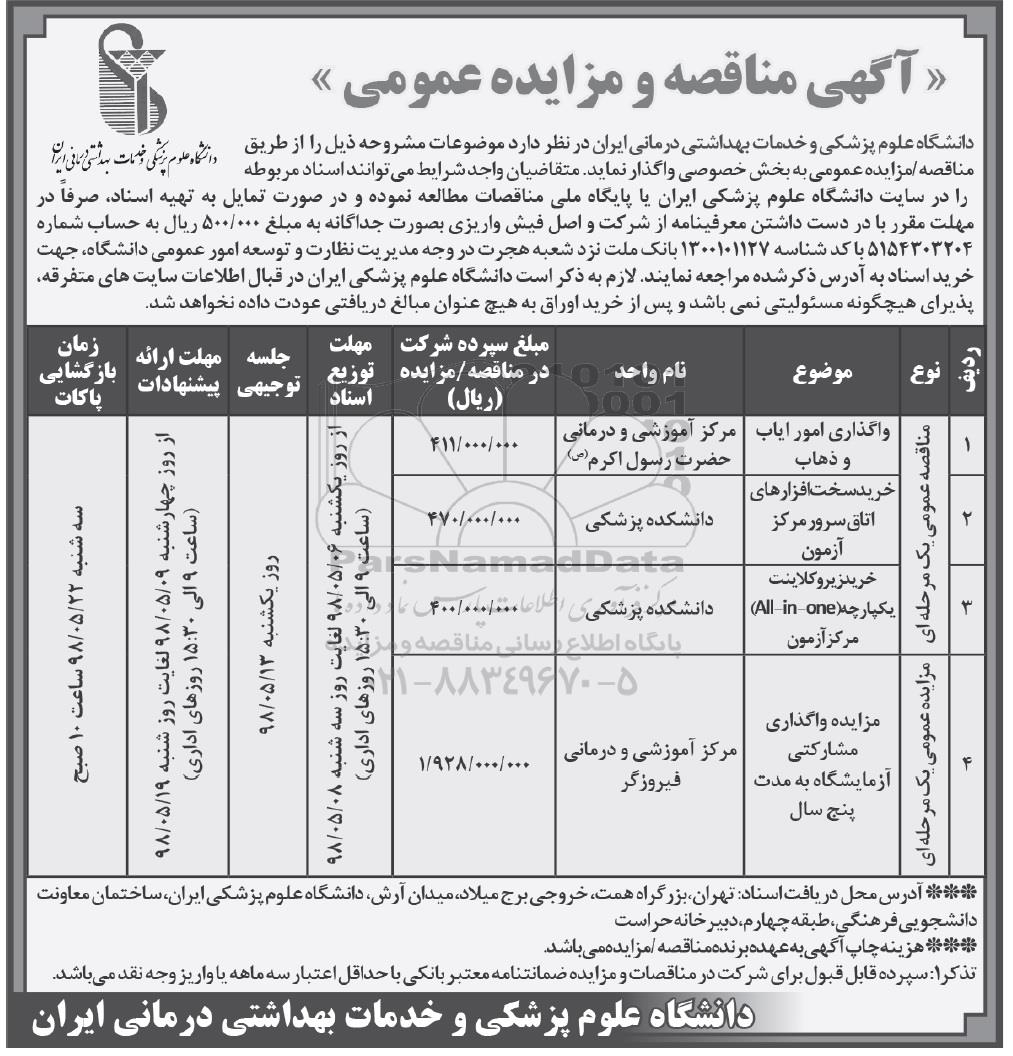 « آگهی مناقصه و مزایده عمومی »
دانشگاه علوم پزشکی و خدمات بهداشتی درمانی ایران
دانشگاه علوم پزشکی و خدمات بهداشتی درمانی ایران در نظر دارد موضوعات مشروحه ذیل را از طریق
مناقصه/مزایده عمومی به بخش خصوصی واگذار نماید. متقاضیان واجد شرایط می‌توانند اسناد مربوطه
را در سایت دانشگاه علوم پزشکی ایران یا پایگاه ملی مناقصات مطالعه نموده و در صورت تمایل به تهیه اسناد، صرفاً در
مهلت مقرر با در دست داشتن معرفینامه از شرکت و اصل فیش واریزی بصورت جداگانه به مبلغ ۵۰۰/۰۰۰ ریال به حساب شماره
۵۱۵۴۳۰۳۲۰۴ با کد شناسه ۱۳۰۰۱۰۱۱۲۷ بانک ملت نزد شعبه هجرت در وجه مدیریت نظارت و توسعه امور عمومی دانشگاه، جهت
خرید اسناد به آدرس ذکر شده مراجعه نمایند. لازم به ذکر است دانشگاه علوم پزشکی ایران در قبال اطلاعات سایت های متفرقه،
پذیرای هیچگونه مسئولیتی نمی باشد و پس از خرید اوراق به هیچ عنوان مبالغ دریافتی عودت داده نخواهد شد.
ردیف
نوع
موضوع
نام واحد
مبلغ سپرده شرکت
در مناقصه/مزایده
(ریال)
مهلت
توزیع
اسناد
جلسه
توجیهی
مهلت ارائه
پیشنهادات
زمان
بازگشایی
پاکات
۱
مناقصه عمومی یک مرحله ای
واگذاری امور ایاب
و ذهاب
مرکز آموزشی و درمانی
حضرت رسول اکرم (ص)
۴۱۱/۰۰۰/۰۰۰
از روز یکشنبه ۹۸/۰۵/۰۶ لغایت روز سه شنبه ۹۸/۰۵/۰۸
(ساعت ۹ الی ۱۵:۳۰ روزهای اداری)
روز یکشنبه ۹۸/۰۵/۱۳
از روز چهارشنبه ۹۸/۰۵/۰۹ لغایت روز شنبه ۹۸/۰۵/۱۹
(ساعت ۹ الی ۱۵:۳۰ روزهای اداری)
سه شنبه ۹۸/۰۵/۲۲ ساعت ۱۰ صبح
۲
خرید سخت‌افزارهای
اتاق سرور مرکز
آزمون
دانشکده پزشکی
۴۷۰/۰۰۰/۰۰۰
۳
خرید زیرو کلاینت
یکپارچه (All-in-one)
مرکز آزمون
دانشکده پزشکی
۴۰۰/۰۰۰/۰۰۰
۴
مزایده عمومی یک مرحله ای
مزایده واگذاری
مشارکتی
آزمایشگاه به مدت
پنج سال
مرکز آموزشی و درمانی
فیروزگر
۱/۹۲۸/۰۰۰/۰۰۰
ParsNamadData
پایگاه اطلاع رسانی مناقصه و مزایده
۰۲۱-۸۸۳۴۹۶۷۰-۵
*** آدرس محل دریافت اسناد: تهران، بزرگراه همت، خروجی برج میلاد، میدان آرش، دانشگاه علوم پزشکی ایران، ساختمان معاونت
دانشجویی فرهنگی، طبقه چهارم، دبیرخانه حراست
*** هزینه چاپ آگهی به عهده برنده مناقصه/مزایده می باشد.
تذکر۱: سپرده قابل قبول برای شرکت در مناقصات و مزایده ضمانتنامه معتبر بانکی با حداقل اعتبار سه ماهه یا واریز وجه نقد می باشد.
دانشگاه علوم پزشکی و خدمات بهداشتی درمانی ایران